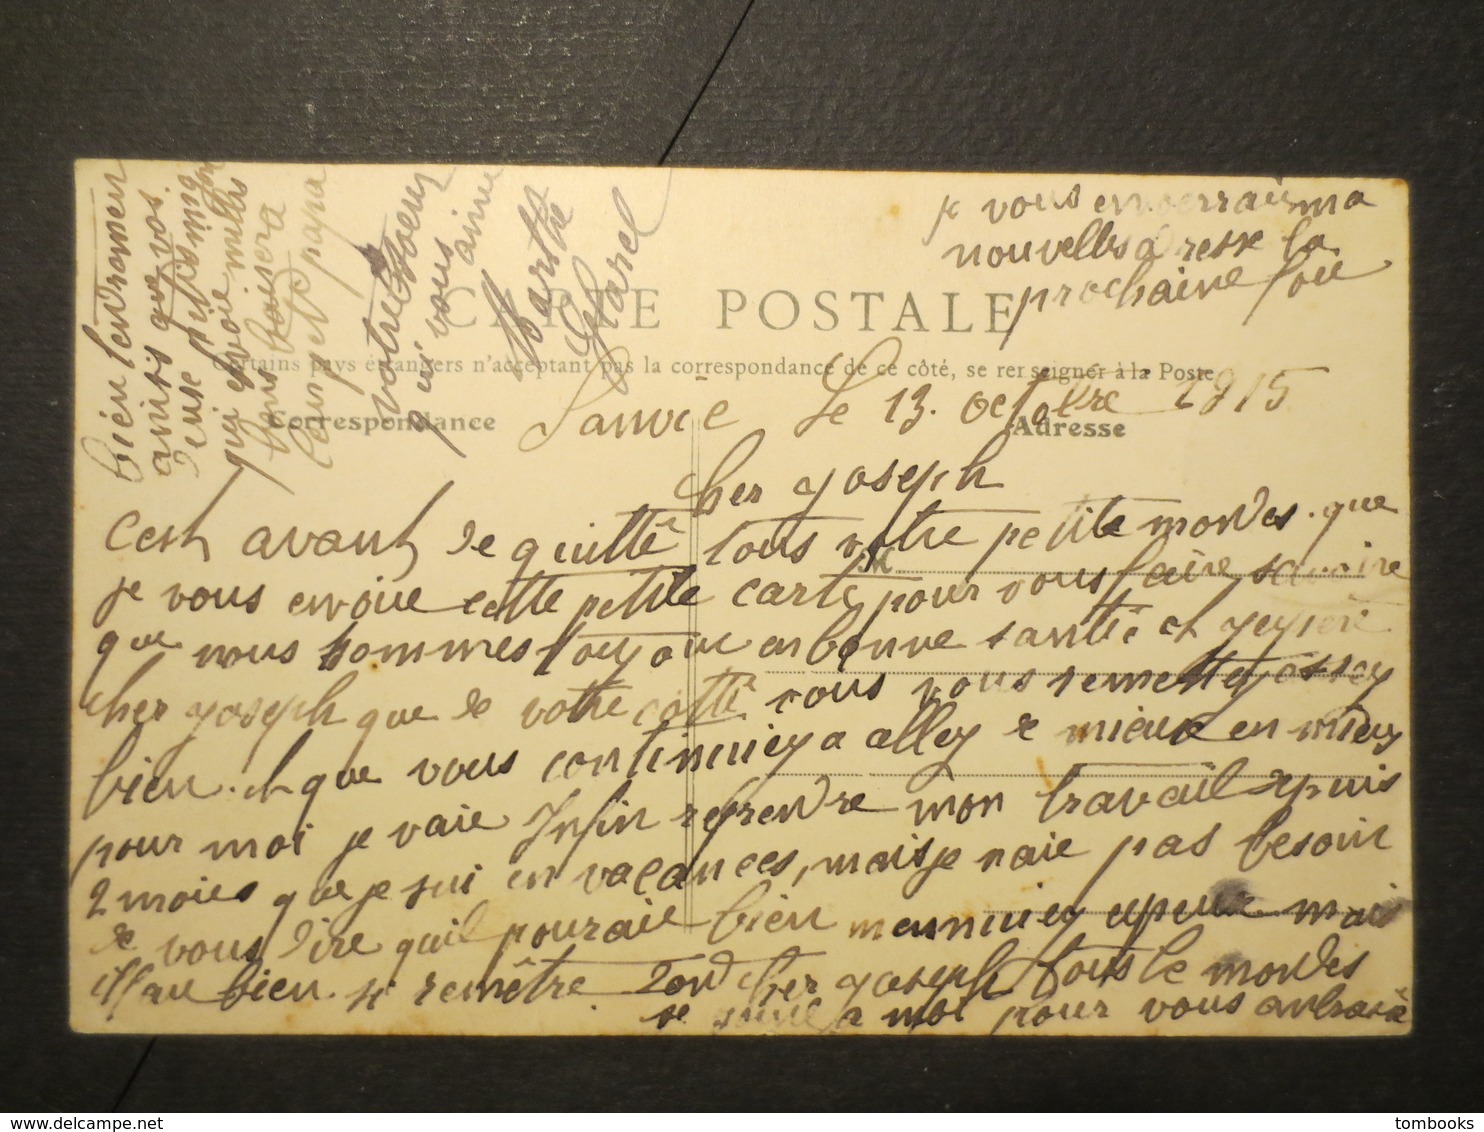 je vous enverrais ma
nouvelles adresse la
prochaine fois
CARTE POSTALE
Certains pays étrangers n'acceptant pas la correspondance de ce côté, se renseigner à la Poste
Correspondance
Adresse
Le 13. Octobre 1915
Cher Joseph
C'est avant de quitté tous votre petite mondes. que
je vous envoie cette petite carte pour vous faire savoire
que nous sommes toujour en bonne santé et j'espere
cher joseph que de votre cotté vous vous remettez assez
bien. et que vous continuiez a allez de mieux en mieux
pour moi je vaie Infin reprendre mon travail depuis
2 moies que je sui en vacances, mais je naie pas besoin
de vous dire quil pouraie bien mennuiez un peux mais
il fau bien. si remêtre. Donc cher joseph tous le mondes
se suive a moi pour vous anbrassé
bien tendremen
amis que vos
deux petits mig
qui envoie milles
bons baisera
leur petit papa
votre soeur
qui vous
aime
Marthe